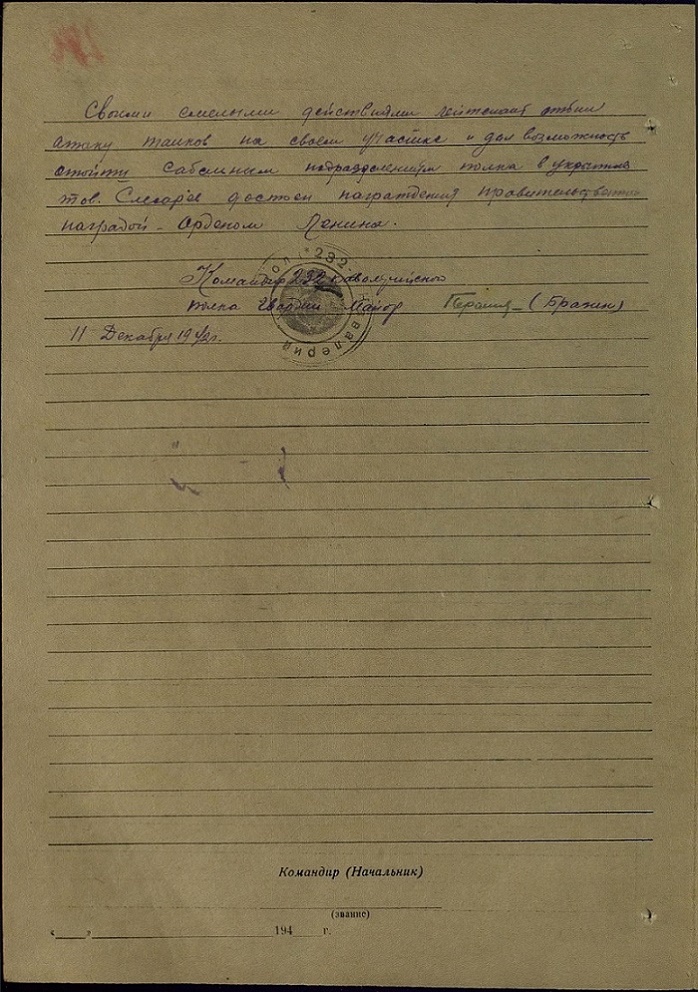 Своими смелыми действиями лейтенант отбил
атаку танков на своем участке и дал возможность
отойти сабельным подразделениям полка в укрытие
тов. Слесарев достоен награждения правительственной
наградой - Орденом Ленина.
Командир 232 кавалерийского
полка Гвардии - Майор (Бражин)
11 Декабря 1942г.
232
Командир (Начальник)
(звание)
« » 194 г.